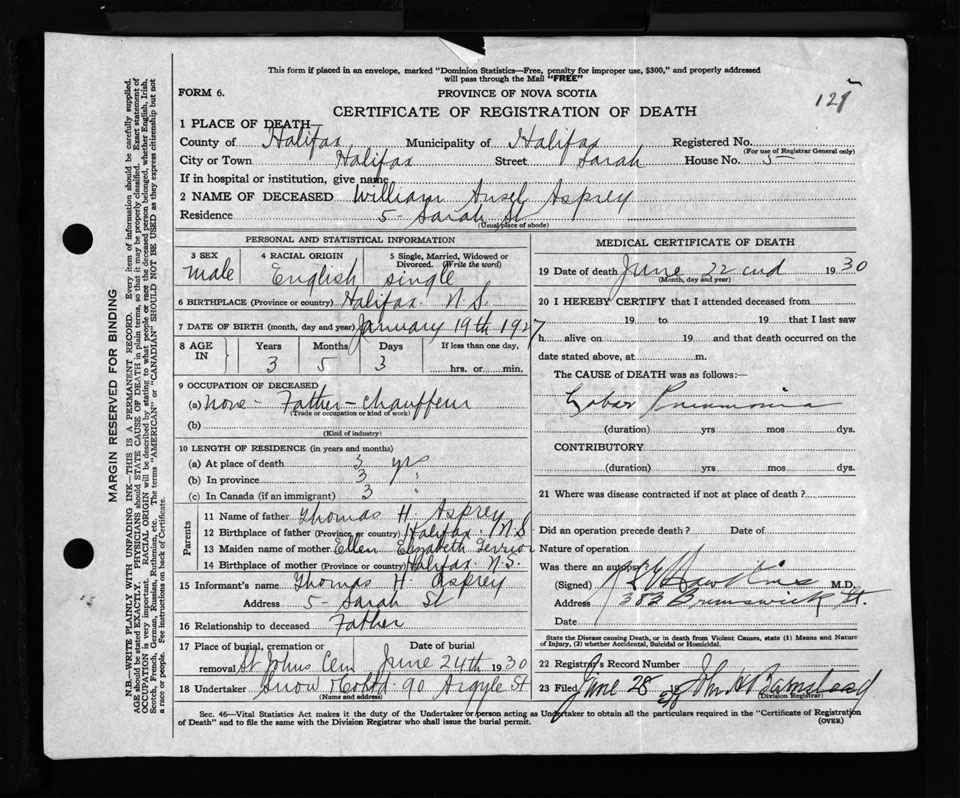 This form if placed in an envelope, marked "Dominion Statistics—Free, penalty for improper use, $300," and properly addressed
will pass through the Mail "FREE"
FORM 6.
PROVINCE OF NOVA SCOTIA
CERTIFICATE OF REGISTRATION OF DEATH
1 PLACE OF DEATH—
County of Halifax Municipality of Halifax Registered No.
(For use of Registrar General only)
City or Town Halifax Street Sarah House No. 5
If in hospital or institution, give name
2 NAME OF DECEASED William Ansel Asprey
Residence 5 - Sarah St
(Usual place of abode)
PERSONAL AND STATISTICAL INFORMATION
3 SEX 4 RACIAL ORIGIN 5 Single, Married, Widowed or
Divorced. (Write the word)
male English single
6 BIRTHPLACE (Province or country) Halifax N.S.
7 DATE OF BIRTH (month, day and year) January 19th 1927
8 AGE IN Years Months Days If less than one day,
3 5 3 hrs. or min.
9 OCCUPATION OF DECEASED
(a) none - Father - chauffeur
(Trade or occupation or kind of work)
(b)
(Kind of industry)
10 LENGTH OF RESIDENCE (in years and months)
(a) At place of death 3 yrs
(b) In province 3 "
(c) In Canada (if an immigrant) 3 "
Parents
11 Name of father Thomas H. Asprey
12 Birthplace of father (Province or country) Halifax N.S
13 Maiden name of mother Ellen Elizabeth
14 Birthplace of mother (Province or country) Halifax N.S.
15 Informant's name Thomas H. Asprey
Address 5 - Sarah St
16 Relationship to deceased Father
17 Place of burial, cremation or Date of burial
removal St Johns Cem June 24th 1930
18 Undertaker Snow & Co Ltd - 90 Argyle St
(Name and address)
MEDICAL CERTIFICATE OF DEATH
19 Date of death June 22nd 1930
(Month, day and year)
20 I HEREBY CERTIFY that I attended deceased from
19 to 19 that I last saw
h alive on 19 and that death occurred on the
date stated above, at m.
The CAUSE of DEATH was as follows:—
Lobar Pneumonia
(duration) yrs mos dys.
CONTRIBUTORY
(duration) yrs mos dys.
21 Where was disease contracted if not at place of death?
Did an operation precede death? Date of
Nature of operation
Was there an autopsy?
(Signed) Hawkins M.D.
Address 353 Brunswick St.
Date
State the Disease causing Death, or in death from Violent Causes, state (1) Means and Nature
of Injury, (2) whether Accidental, Suicidal or Homicidal.
22 Registrar's Record Number
23 Filed June 28 19 John H Barnstead
(Division Registrar)
Sec. 46—Vital Statistics Act makes it the duty of the Undertaker or person acting as Undertaker to obtain all the particulars required in the "Certificate of Registration
of Death" and to file the same with the Division Registrar who shall issue the burial permit.
(OVER)
MARGIN RESERVED FOR BINDING
N.B.—WRITE PLAINLY WITH UNFADING INK—THIS IS A PERMANENT RECORD. Every item of information should be carefully supplied.
AGE should be stated EXACTLY. PHYSICIANS should STATE CAUSE OF DEATH in plain terms, so that it may be properly classified. Exact statement of
OCCUPATION is very important. RACIAL ORIGIN will be described by stating to what people or race the deceased person belonged, whether English, Irish,
Scotch, French, German, Russian, Ruthenian, etc. The terms "AMERICAN" or "CANADIAN" SHOULD NOT BE USED as they express citizenship but not
a race or people. See instructions on back of Certificate.